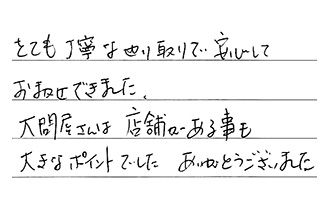 とても丁寧なやり取りで安心して
お任せできました。
大問屋さんは店舗がある事も
大きなポイントでした ありがとうございました